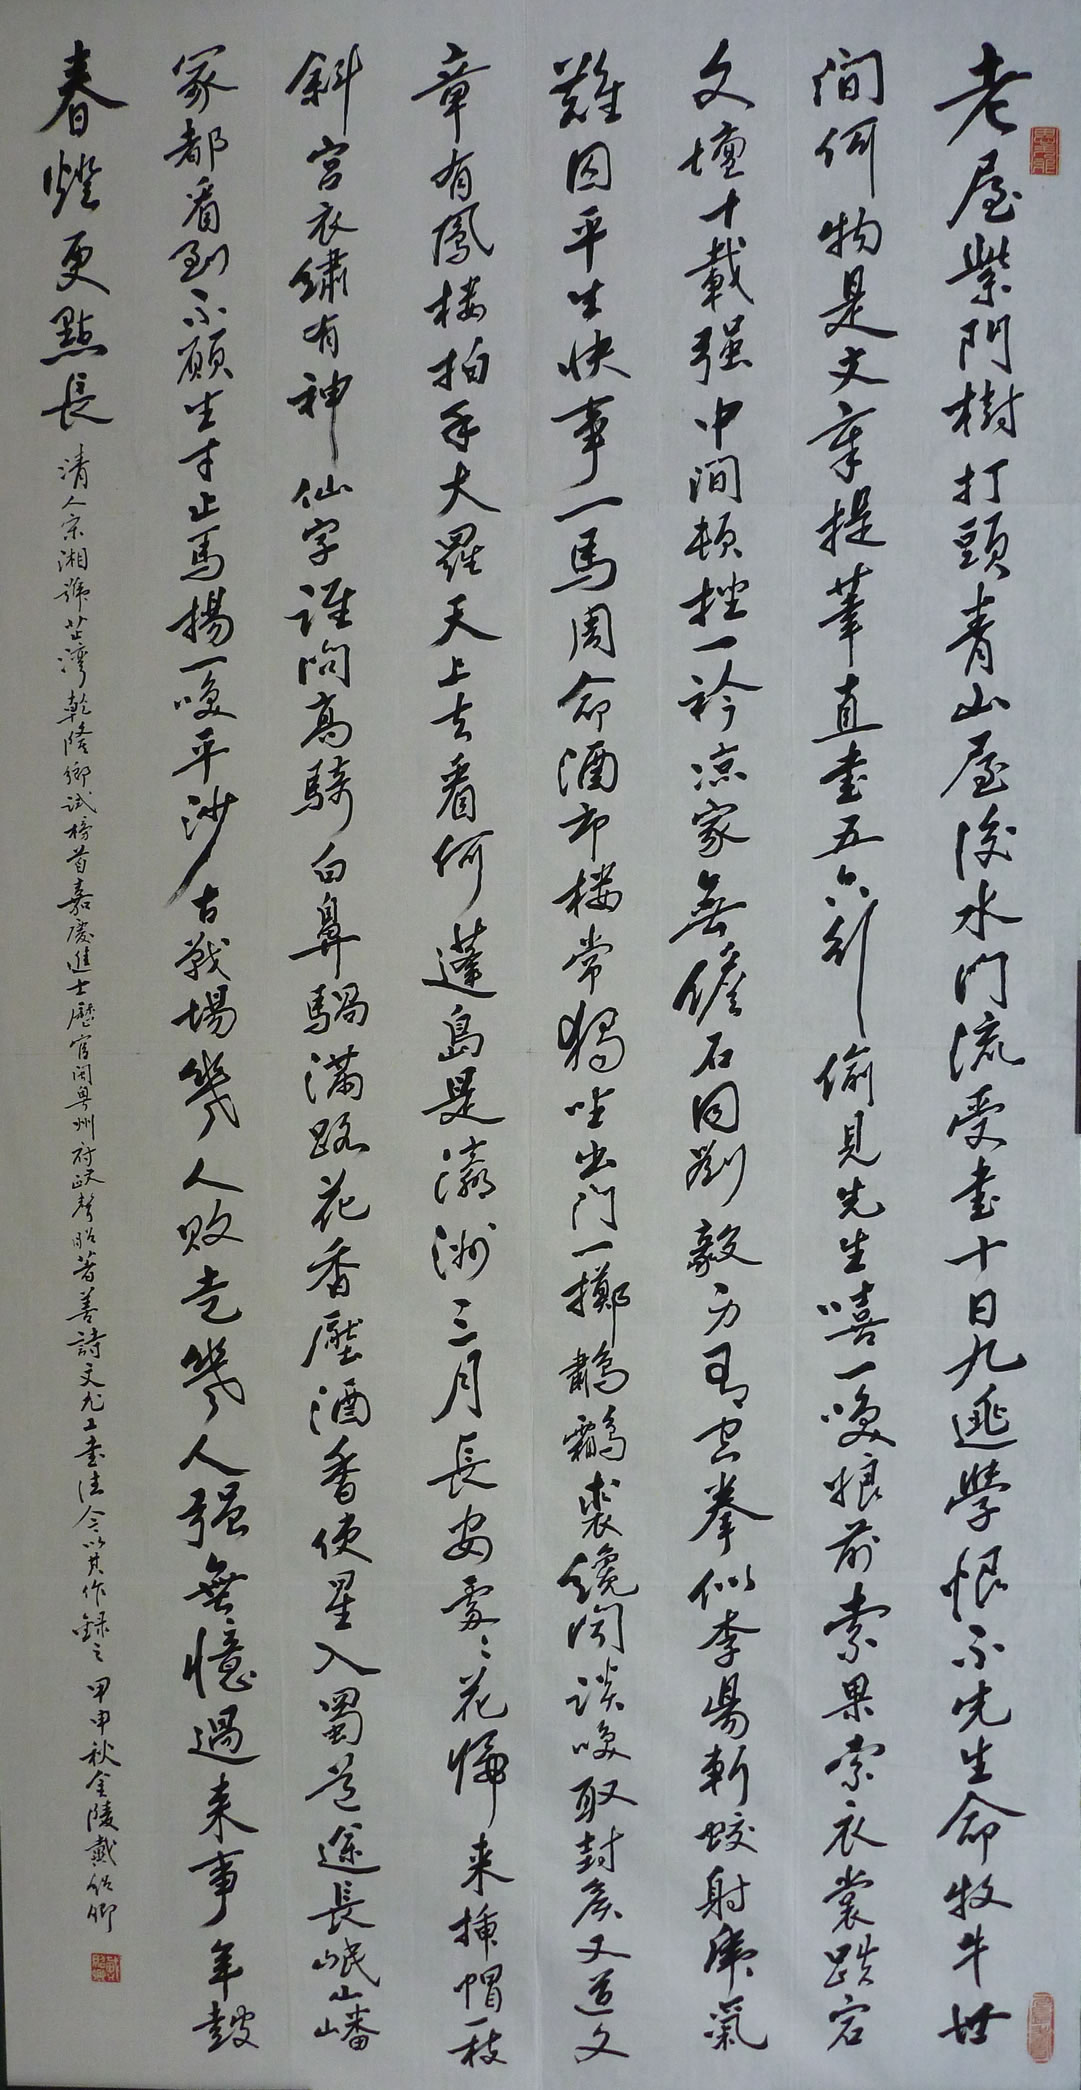 老屋柴門樹打頭青山屋後水門流受書十日九逃學恨不先生命牧牛世
间何物是文章提筆直書五六行偷見先生嘻一喚娘前索果索衣裳跌宕
文壇十載强中间頓挫一衿凉家無儋石同劉毅力有空拳似李陽斬蛟射虎氣
難囚平生快事一馬周命酒市楼常獨坐出門一擲鷫鸘裘纔闻談唉取封矦又道文
章有鳳楼拍手大羅天上去看何蓬島是瀛洲三月長安處〻花歸来揷帽一枝
斜宫衣繡有神仙字誰问高騎白鼻騧滿路花香壓酒香使星入蜀道途長岷山嶓
冢都看到不願生才止馬揚一喚平沙古戰場幾人敗走幾人强無憶過来事年鼓
春燈更點長
清人宋湘號芷灣乾隆鄉試榜首嘉慶進士歷官闽粤州府政聲昭著善詩文尤工書法今以其作録之甲申秋金陵戴